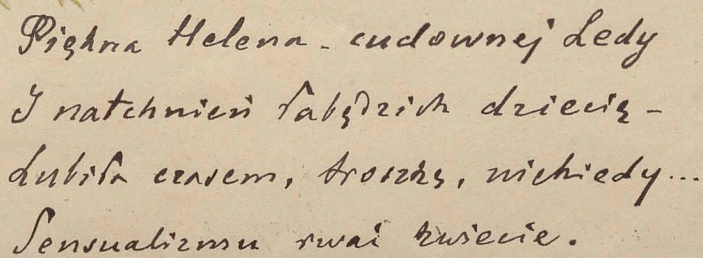 Piękna Helena - cudownej Ledy
I natchnień łabędzich dziecię -
Lubiła czasem, troszkę, niekiedy...
Sensualizmu rwać kwiecie.